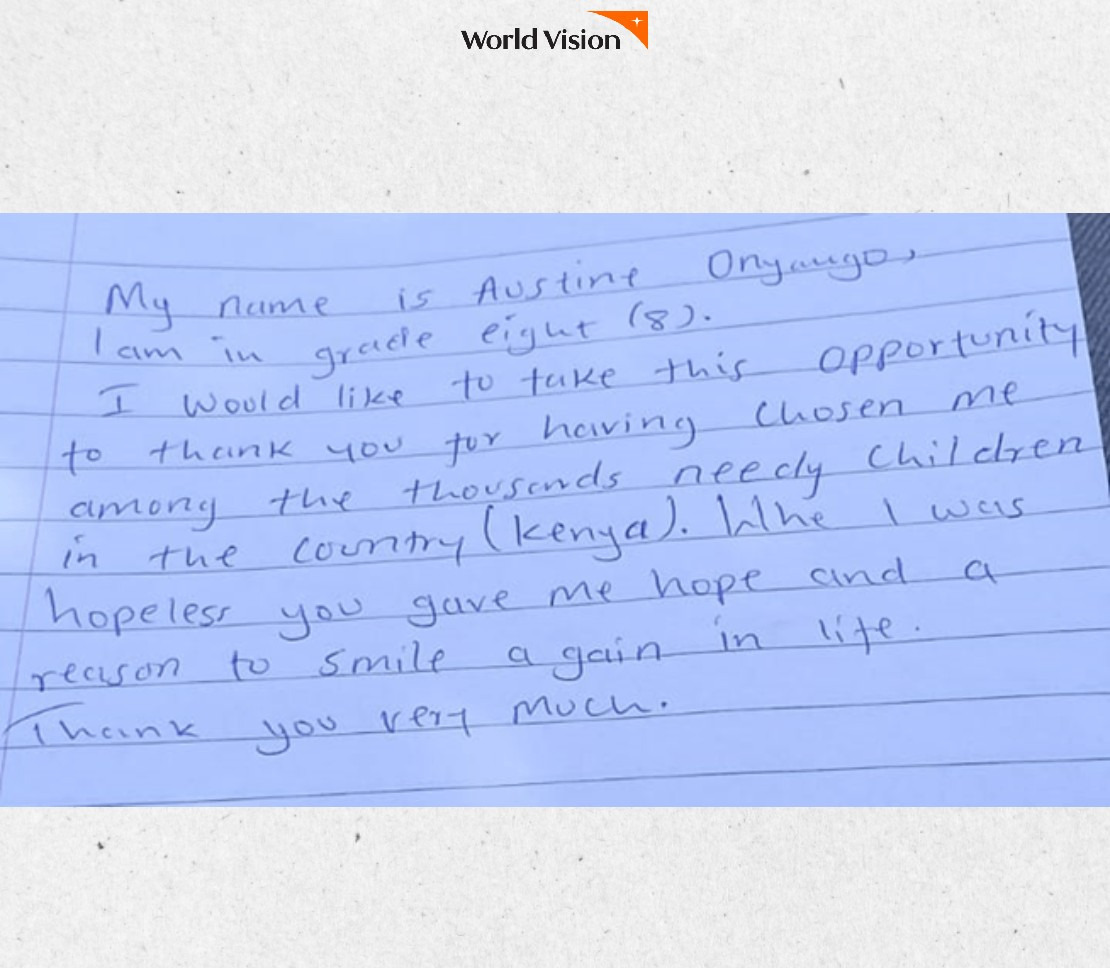 World Vision
My name is Austine Onyango,
I am in grade eight (8).
I would like to take this opportunity
to thank you for having chosen me
among the thousands needy children
in the country (Kenya). Whe I was
hopeless you gave me hope and a
reason to smile again in life.
Thank you very much.